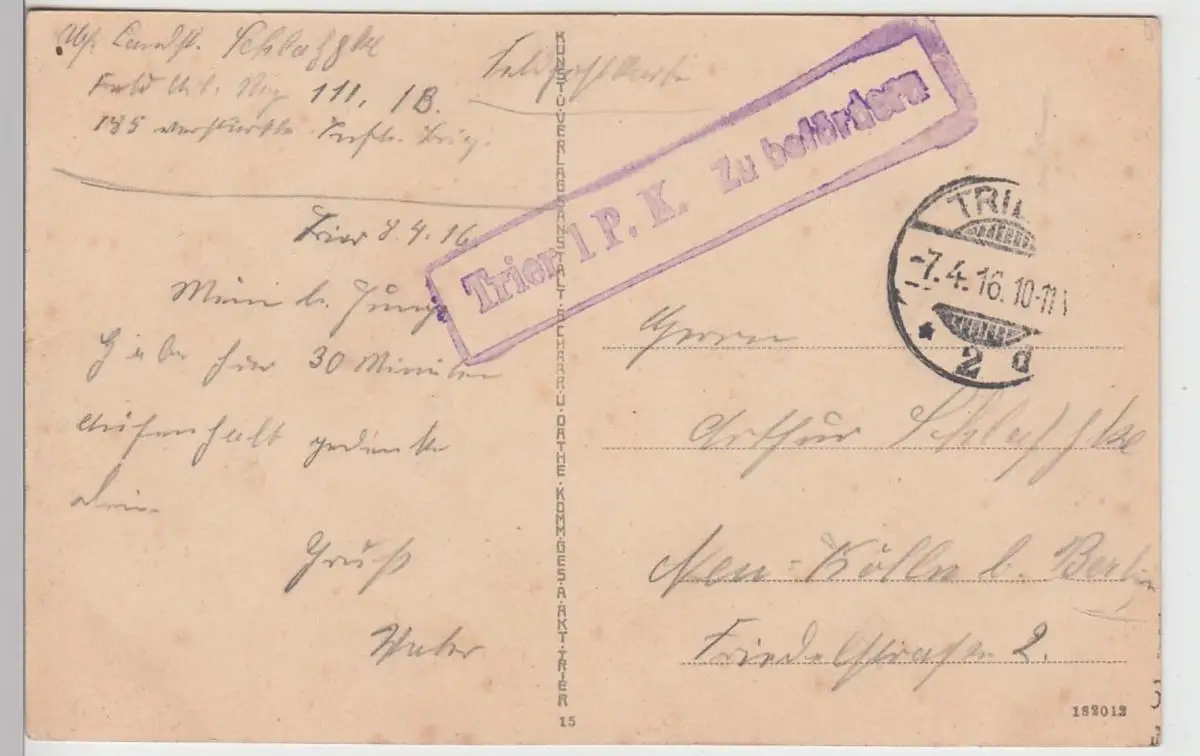 Abs. Landst. Schlaffke
Feld Art. Reg 111. 1B.
185 verstärkte Inftr. Brig.
Feldpostkarte
Trier 1 P. K. Zu befördern
TRIE
-7.4.16.10-11
* 2 d
Trier 8.4.16
Mein l. Junge
Habe hier 30 Minuten
Aufenhalt gedenke
dein
Gruß
Vater
KUNST·U·VERLAGSANSTALT·SCHAAR·U·DATHE·KOMM·GES·A·AKT·TRIER
15
Herrn
Arthur Schlaffke
Neu-Kölln b. Berlin
Friedelstraße 2.
182012